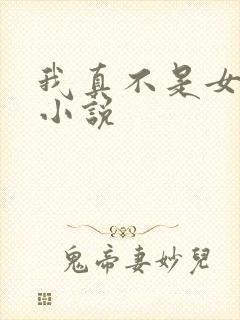 我真不是女
小說
鬼帝妻妙兒